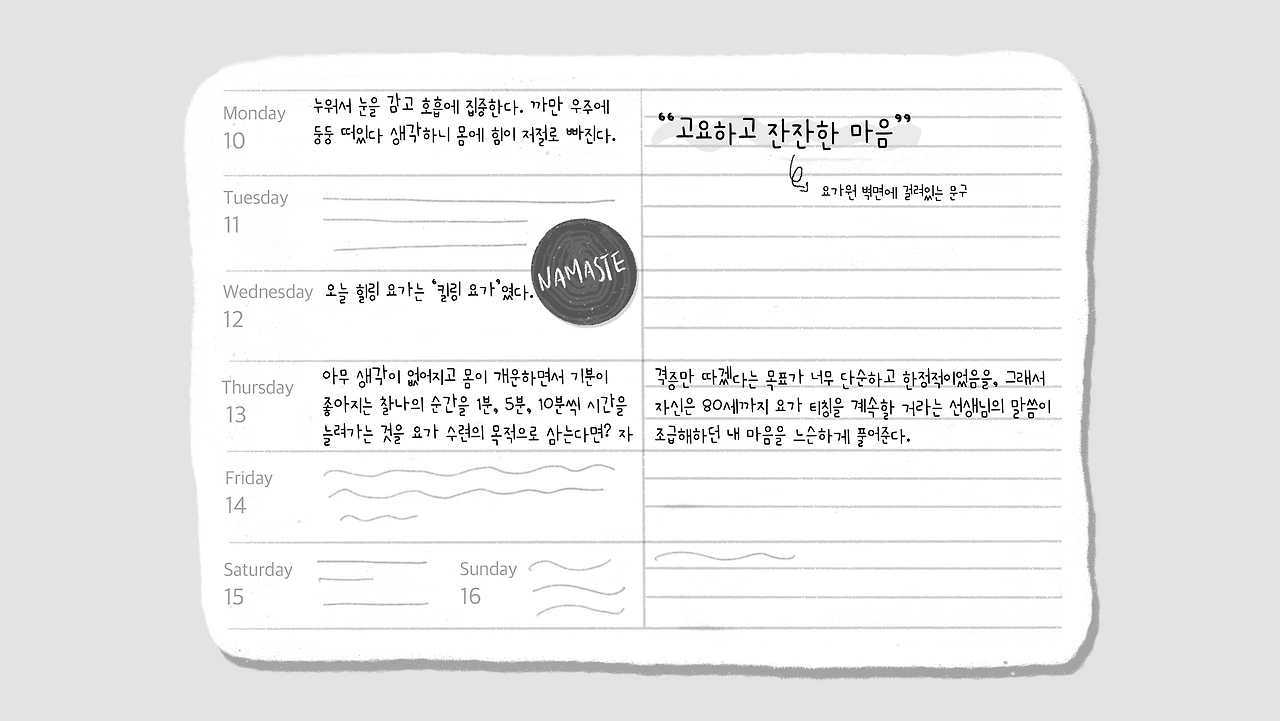 Monday
10
누워서 눈을 감고 호흡에 집중한다. 까만 우주에
둥둥 떠있다 생각하니 몸에 힘이 저절로 빠진다.
Tuesday
11
NAMASTE
Wednesday
12
오늘 힐링 요가는 ‘킬링 요가’였다.
Thursday
13
아무 생각이 없어지고 몸이 개운하면서 기분이
좋아지는 찰나의 순간을 1분, 5분, 10분씩 시간을
늘려가는 것을 요가 수련의 목적으로 삼는다면? 자
Friday
14
Saturday
15
Sunday
16
“고요하고 잔잔한 마음”
요가원 벽면에 걸려있는 문구
격증만 따겠다는 목표가 너무 단순하고 한정적이었음을, 그래서
자신은 80세까지 요가 티칭을 계속할 거라는 선생님의 말씀이
조급해하던 내 마음을 느슨하게 풀어준다.